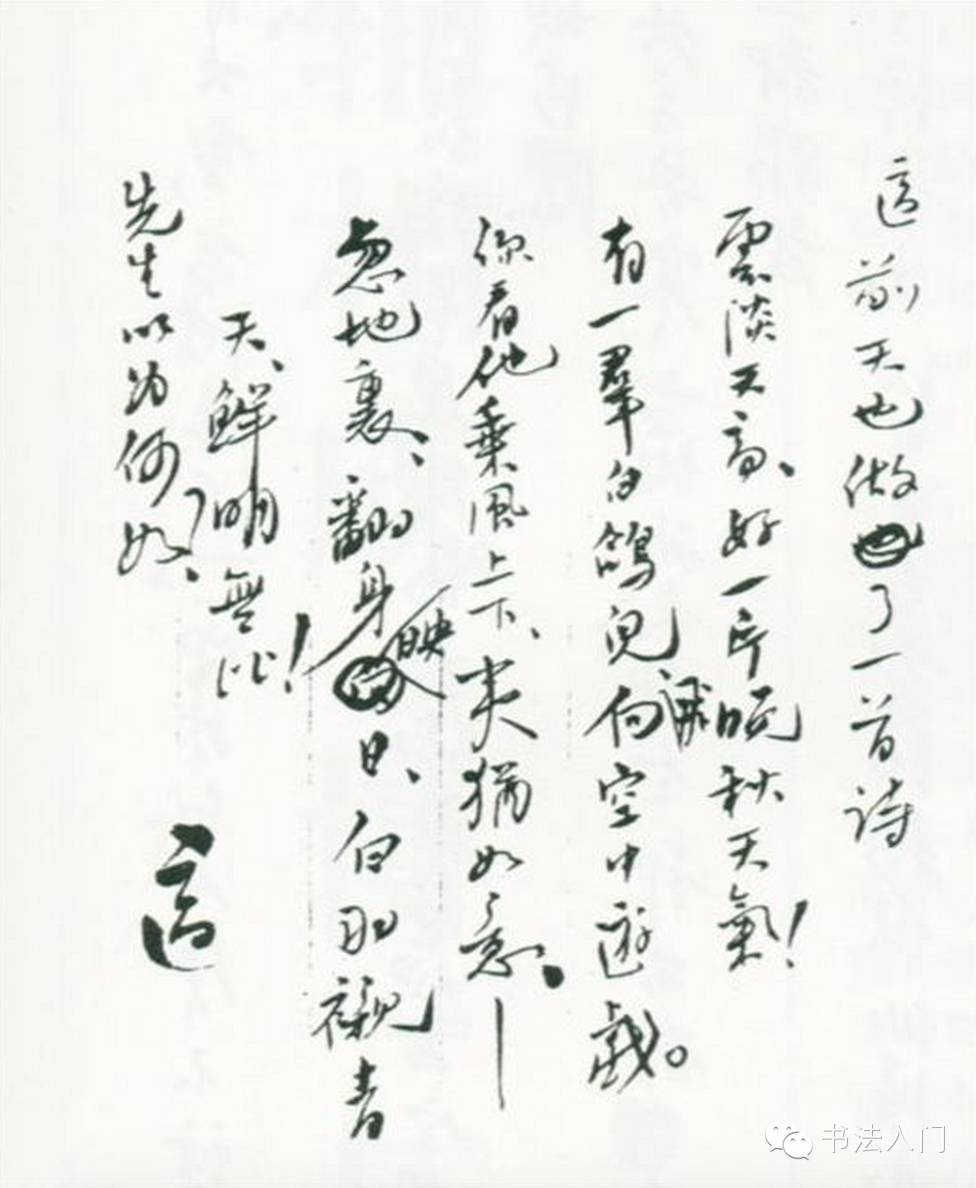 適前天也做了一首詩
雲淡天高、好一片晚秋天氣!
有一羣白鴿兒、飛向空中遊戲。
你看他乘風上下、夷猶如意、—
忽地裏、翻身映日、白羽襯青
天、鮮明無比!
先生以為何如、
適
书法入门